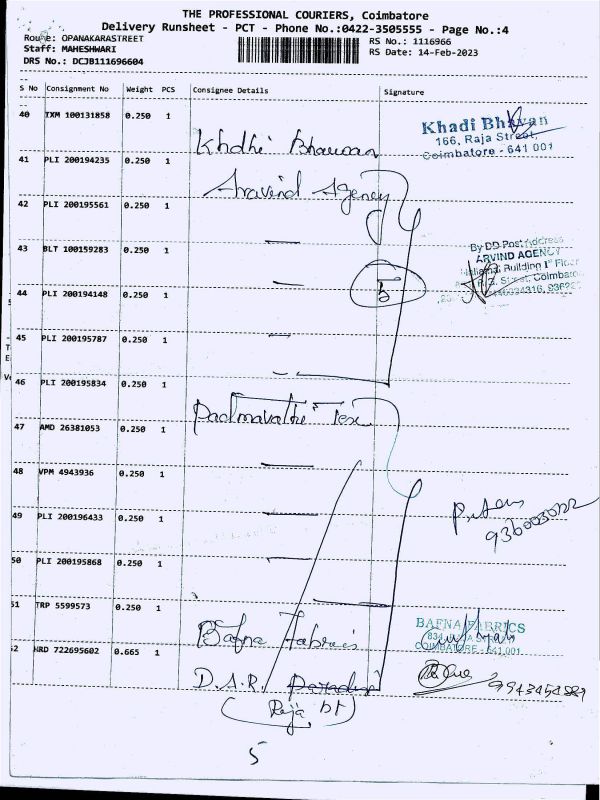 THE PROFESSIONAL COURIERS, Coimbatore
Delivery Runsheet - PCT - Phone No.:0422-3505555 - Page No.:4
Route: OPANAKARASTREET
RS No.: 1116966
Staff: MAHESHWARI
RS Date: 14-Feb-2023
DRS No.: DCJB111696604
S No Consignment No Weight PCS Consignee Details Signature
40 TXM 100131858 0.250 1
Khdhi Bhawan
Khadi Bhavan
166, Raja Street,
Coimbatore - 641 001
41 PLI 200194235 0.250 1
Aravind Agency
42 PLI 200195561 0.250 1
43 BLT 100159283 0.250 1
By DD Post Address
ARVIND AGENCY
National Building 1st Floor
R.G. Street, Coimbatore
5
44 PLI 200194148 0.250 1
45 PLI 200195787 0.250 1
46 PLI 200195834 0.250 1
Padmavathi Tex
47 AMD 26381053 0.250 1
48 VPM 4943936 0.250 1
49 PLI 200196433 0.250 1
50 PLI 200195868 0.250 1
51 TRP 5599573 0.250 1
Bafna Fabrics
BAFNA FABRICS
COIMBATORE - 641 001
52 HRD 722695602 0.665 1
D.A.R. Paradise
(Raja st)
5